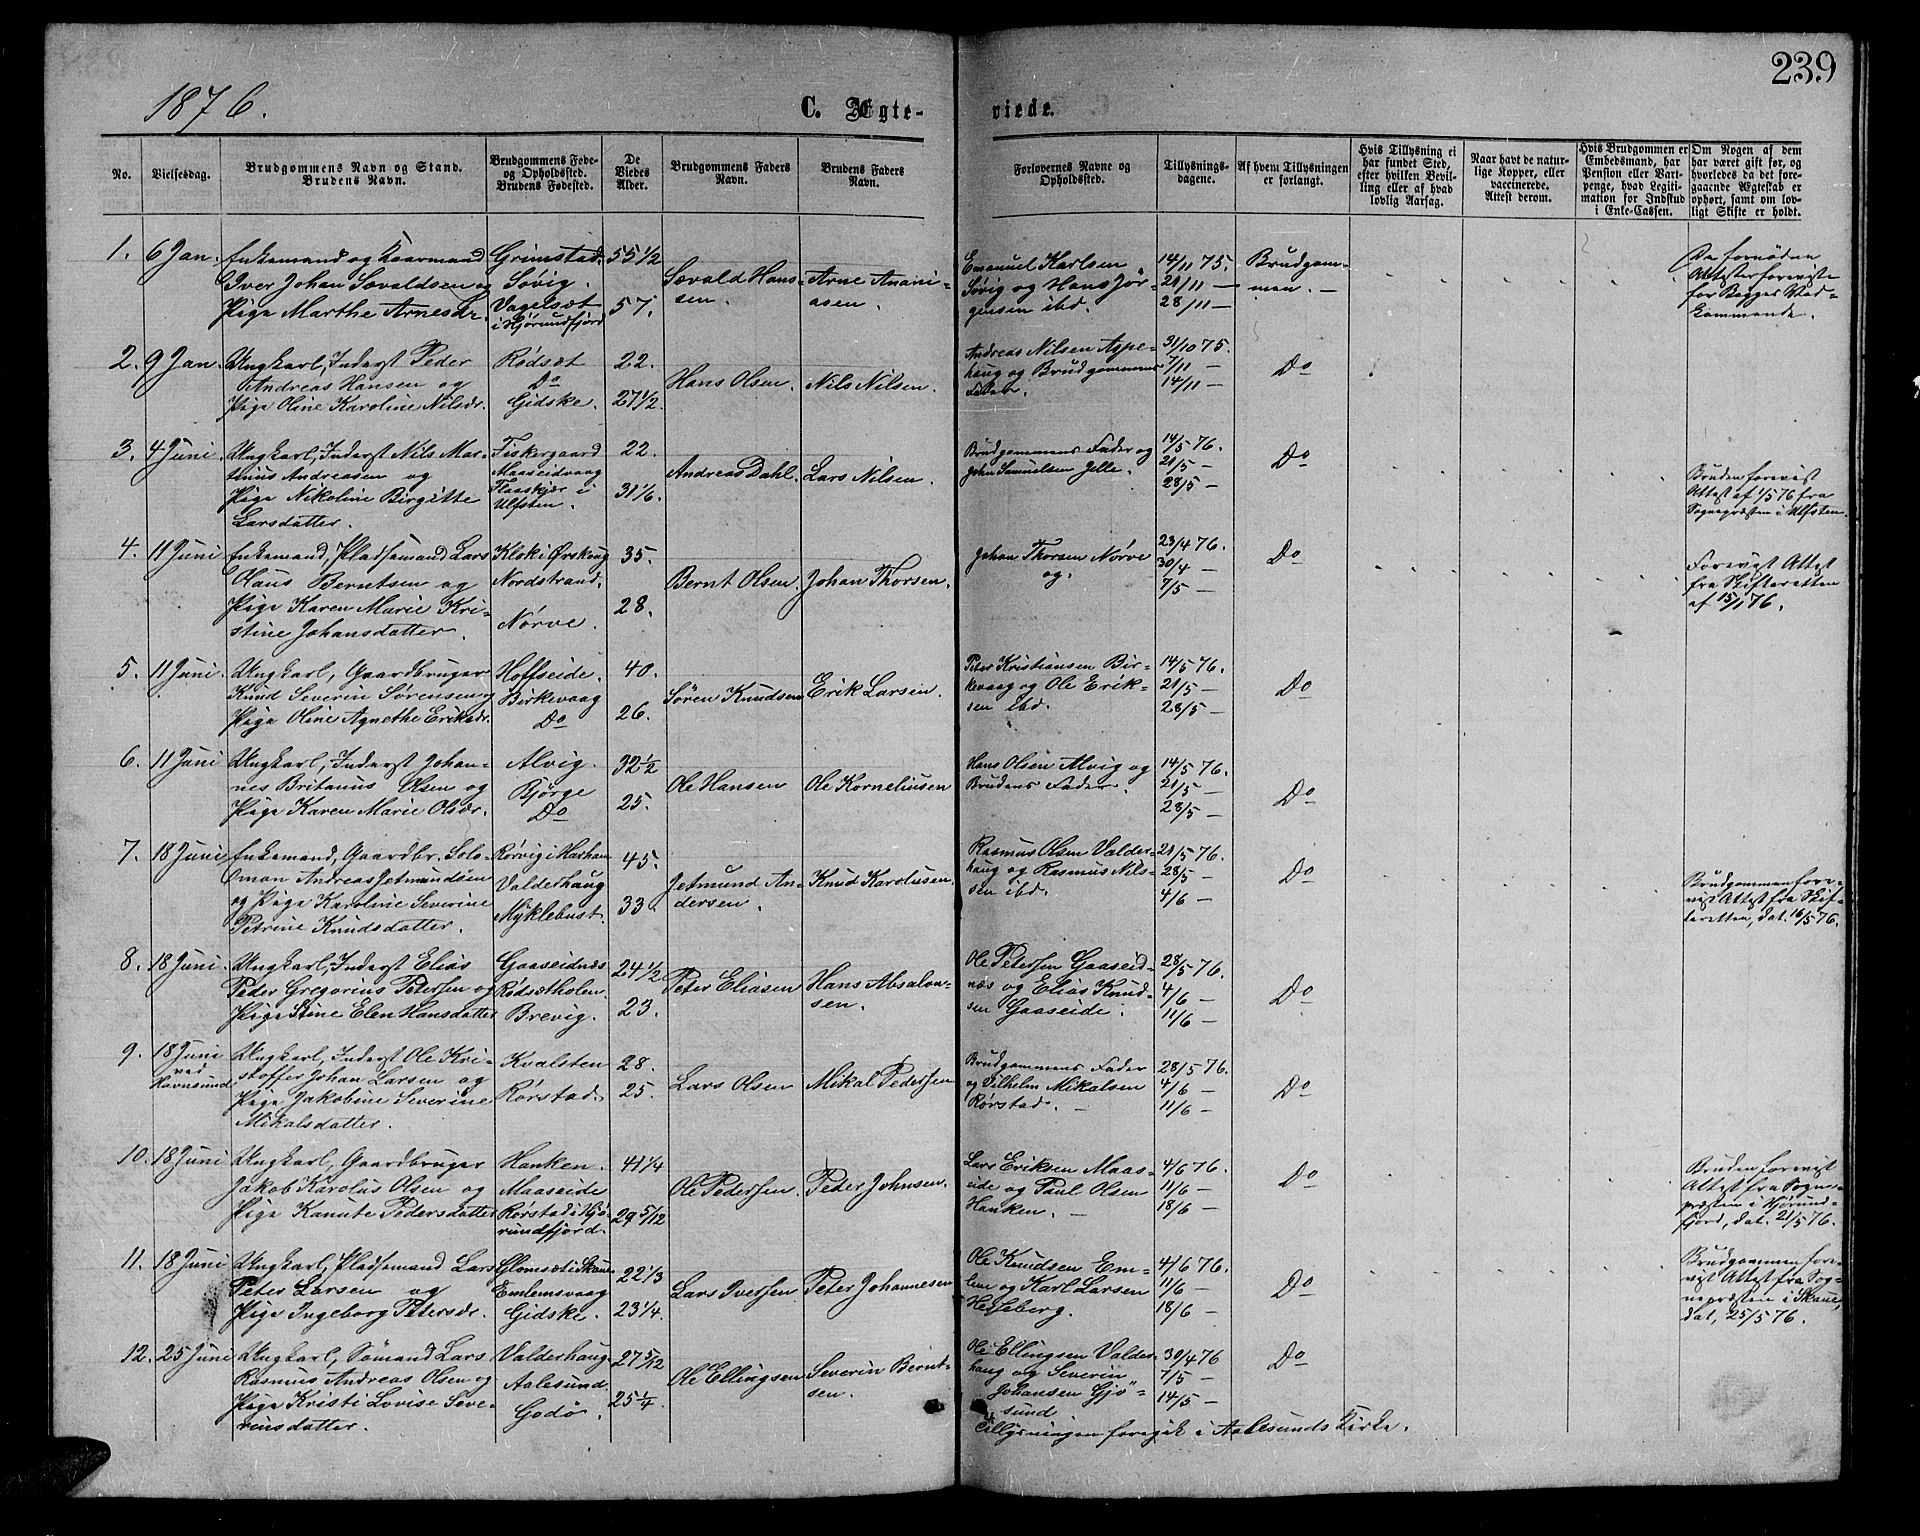 239
1876.
C. Ægte-
viede.
No.
Vielsesdag.
Brudgommens Navn og Stand.
Brudens Navn.
Brudgommens Føde-
og Opholdssted.
Brudens Fødested.
De
Viedes
Alder.
Brudgommens Faders
Navn.
Brudens Faders
Navn.
Forlovernes Navne og
Opholdssted.
Tillysnings-
dagene.
Af hvem Tillysningen
er forlangt.
Hvis Tillysning ei
har fundet Sted,
efter hvilken Bevil-
ling eller af hvad
lovlig Aarsag.
Naar havt de natur-
lige Kopper, eller
vaccinerede.
Attest derom.
Hvis Brudgommen er
Embedsmand, har
Pension eller Vart-
penge, hvad Legiti-
mation for Indskud
i Enke-Cassen.
Om Nogen af dem
har været gift før, og
hvorledes da det fore-
gaaende Ægteskab er
ophørt, samt om lov-
ligt Skifte er holdt.
1. 6 Jan. Enkemand og Kaarmand
Iver Johan Sævaldsen og
Pige Marthe Arnesdr.
Grimstad.
Sövig.
Vagelsæt
i Hjörundfjord
55 1/2
57.
Sævald Hans-
sen.
Arne Anani-
asen.
Emanuel Karlsen
Sövig og Hans Jör-
gensen ibd.
14/11 75.
21/11 —
28/11 —
Brudgom-
men. —
De fornødne
Attester foreviste
for Begges Ved-
kommende.
2. 9 Jan. Ungkarl, Inderst Peder
Andreas Hansen og
Pige Oline Karoline Nilsdr.
Rødsæt
Do
Gidske.
22.
27 1/2
Hans Olsen.
Nils Nilsen.
Andreas Nilsen Aspe-
haug og Brudgommens
Fader.
31/10 75.
7/11 —
14/11 —
Do
3. 4 Juni. Ungkarl, Inderst Nils Mar-
tinus Andreasen og
Pige Nikoline Birgitte
Larsdatter.
Fiskergaard
Maaseidvaag
Flaaskjær i
Ulfsten.
22.
31 1/6.
Andreas Dahl.
Lars Nilsen.
Brudgommens Fader og
John Samuelsen Jelle.
14/5 76.
21/5 —
28/5 —
Do
Bruden forevist
Attest af 1/5 76 fra
Sognepræsten i Ulfsten.
4. 11 Juni Enkemand, Pladsemand Lars
Olaus Berntsen og
Pige Karen Marie Kri-
stine Johansdatter.
Klok i Ørskoug
Nordstrand.
Nörve.
35.
28.
Bernt Olsen.
Johan Thorsen.
Johan Thorsen Nörve
og.
23/4 76.
30/4 —
7/5 —
Do
Forevist Attest
fra Skifteretten
af 15/1 76.
5. 11 Juni Ungkarl, Gaardbruger
Knud Severin Sörensen og
Pige Oline Agnethe Eriksdr.
Hoffseide.
Birkevaag
Do
40.
26.
Sören Knudsen
Erik Larsen.
Peter Kristiansen Bir-
kevaag og Ole Erik-
sen ibd.
14/5 76.
21/5 —
28/5 —
Do
6. 11 Juni Ungkarl, Inderst Johan-
nes Britanus Olsen og
Pige Karen Marie Olsdr.
Alvig.
Bjørge
Do
32 1/2
25.
Ole Hansen
Ole Korneliusen
Hans Olsen Alvig og
Brudens Fader.
14/5 76.
21/5 —
28/5 —
Do
7. 18 Juni Enkemand, Gaardbr. Solo-
mon Andreas Jetmundsen
og Pige Karoline Severine
Petrine Knudsdatter.
Rørvig i Harham
Valderhaug
Myklebust.
45.
33.
Jetmund An-
dersen.
Knud Karolusen.
Rasmus Olsen Valder-
haug og Rasmus Nils-
sen ibd.
21/5 76.
28/5 —
4/6 —
Do
Brudgommen fore-
vist Attest fra Skif-
teretten, dat. 16/5 76.
8. 18 Juni Ungkarl, Inderst Elias
Peder Gregorius Petersen og
Pige Stine Elen Hansdatter
Gaaseidnæs
Rødsætholen.
Brevig.
24 1/2
23.
Peter Eliasen
Hans Absalon-
sen.
Ole Petersen Gaaseid-
næs og Elias Knud-
sen Gaaseide.
28/5 76.
4/6 —
11/6 —
Do
9. 18 Juni
ved
Havnsund
Ungkarl, Inderst Ole Kri-
stoffer Johan Larsen og
Pige Jakobine Severine
Mikalsdatter.
Kvalsten
Rørstad.
28.
25.
Lars Olsen
Mikal Pedersen
Brudgommens Fader
og Vilhelm Mikalsen
Rørstad. —
28/5 76.
4/6 —
11/6 —
Do
10. 18 Juni Ungkarl, Gaardbruger
Jakob Karolus Olsen og
Pige Kanute Pedersdatter
Hanken.
Maaseide
Rørstad i Hjö-
rundfjord.
41 1/4
29 5/12
Ole Pedersen.
Peder Johnsen.
Lars Eriksen Maas-
eide og Paul Olsen
Hanken. —
4/6 76.
11/6 —
18/6 —
Do
Bruden forevist
Attest fra Sogne-
præsten i Hjörund-
fjord, dat. 21/5 76.
11. 18 Juni Ungkarl, Pladsemand Lars
Peter Larsen og
Pige Ingeborg Petersdr.
Glomsæt i Skaue
Emlemsvaag
Gidske.
22 1/3
23 1/4.
Lars Iversen
Peter Johannesen
Ole Knudsen Em-
lem og Karl Larsen
Hesseberg.
4/6 76.
11/6 —
18/6 —
Do
Brudgommen fore-
vist Attest fra Sog-
nepræsten i Skaue,
dat, 25/5 76.
12. 25 Juni Ungkarl, Sömand Lars
Rasmus Andreas Olsen og
Pige Kristi Lovise Seve-
rinsdatter.
Valderhaug.
Aalesund.
Godö.
27 5/12
25 1/4
Ole Ellingsen
Severin Bernt-
sen.
Ole Ellingsen Valder-
haug og Severin
Johansen Gjö-
sund
30/4 76
7/5 —
14/5 —
Do
Tillysningen foregik i Aalesunds Kirke.